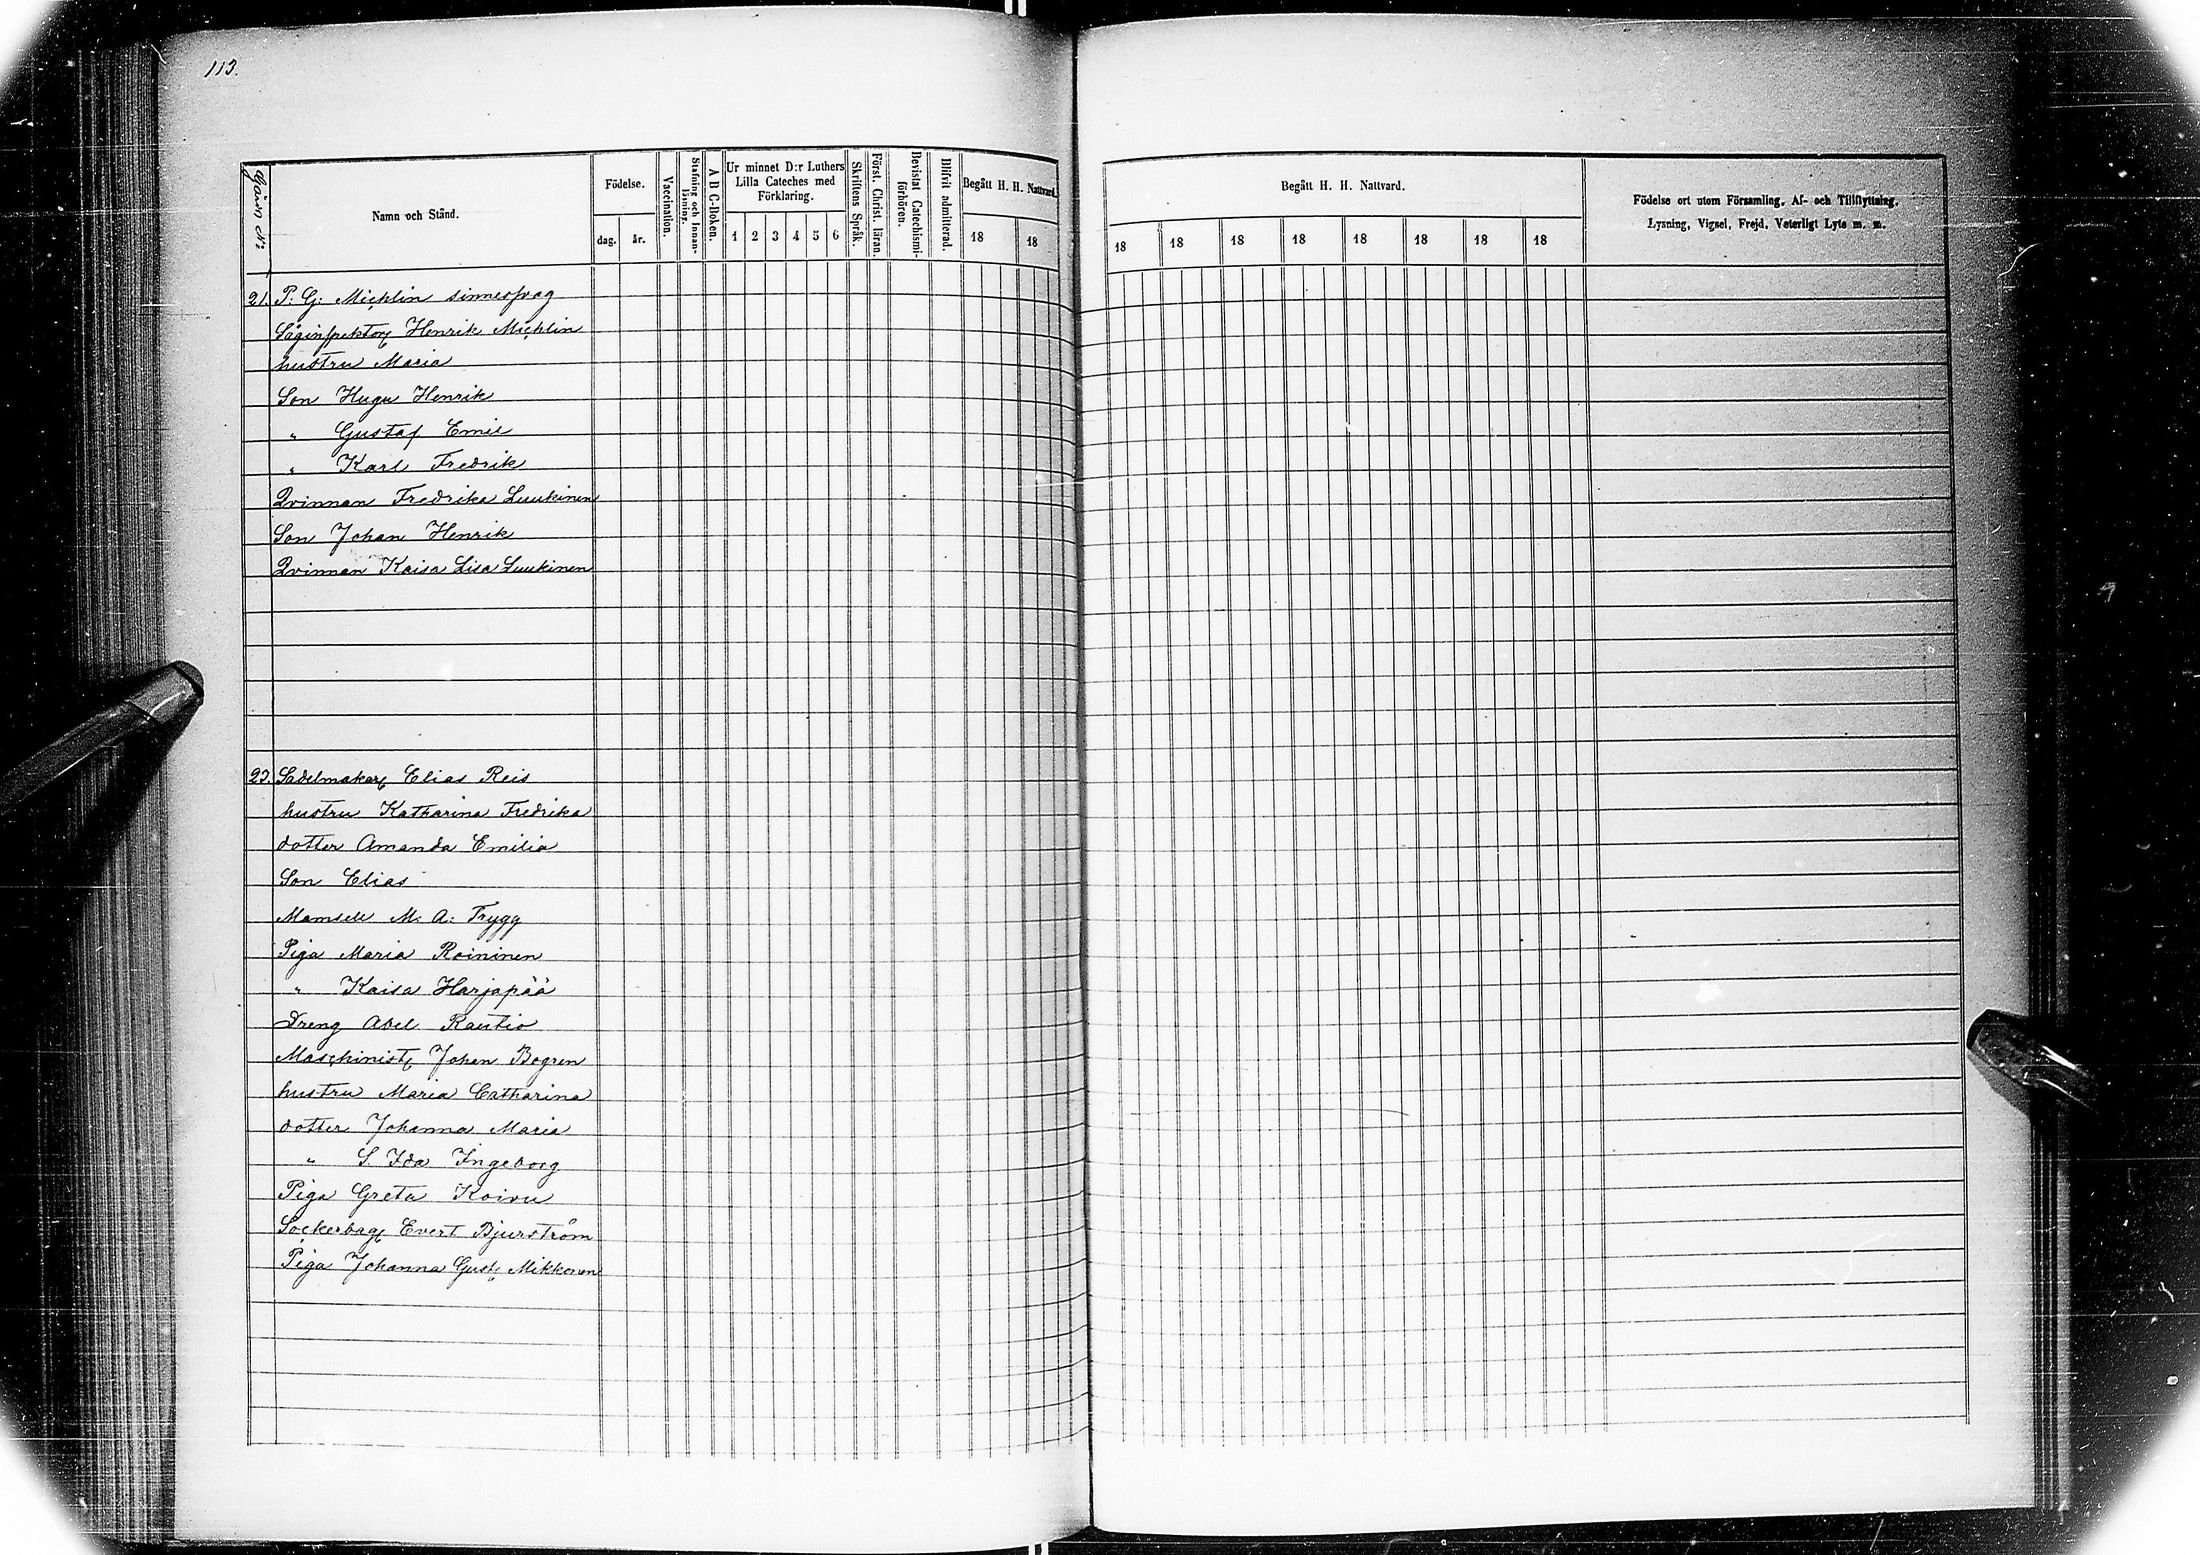 113.
Gård N:
Namn och Stånd.
Födelse.
dag.
år.
Vaccination.
Stafning och Innan-
läsning.
A B C-Boken.
Ur minnet D:r Luthers
Lilla Cateches med
Förklaring.
1 2 3 4 5 6
Skriftens Språk.
Först. Christ. läran.
Bevistat Catechismi-
förhören.
Blifvit admitterad.
Begått H. H. Nattvard.
18 18
Begått H. H. Nattvard.
18 18 18 18 18 18 18 18
Födelse ort utom Församling, Af- och Tillflyttning,
Lysning, Vigsel, Frejd, Veterligt Lyte m. m.
21. P: G: Michlin sinnessvag
Såginspektor Henrik Michlin
hustru Maria
Son Hugu Henrik
" Gustaf Emil
" Karl Fredrik
Qvinnan Fredrika Luukinen
Son Johan Henrik
Qvinnan Kaisa Lisa Luukinen
23. Sadelmakar Elias Reis
hustru Katharina Fredrika
dotter Amanda Emilia
Son Elias
Mamsell M. A: Trygg
Piga Maria Roininen
" Kaisa Harjapää
Dreng Abel Rautio
Maschinist Johan Bogren
hustru Maria Catharina
dotter Johanna Maria
" S. Ida Ingeborg
Piga Greta Koivu
Sockerbag Evert Bjurström
Piga Johanna Gust. Mikkonen